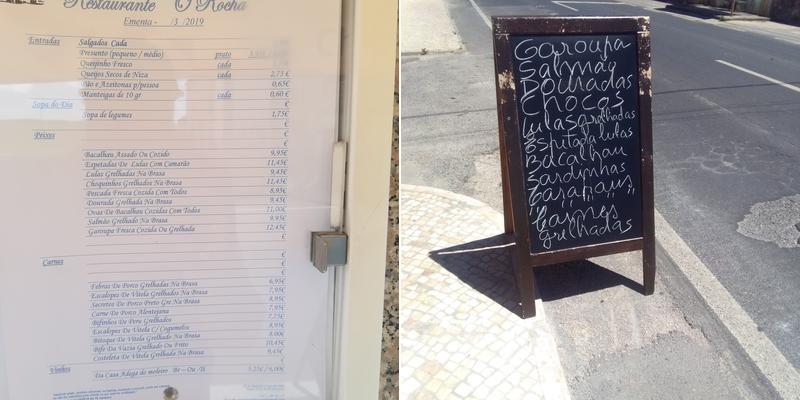 Restaurante O'Rocha
Ementa - /3 /2019
Entradas
Salgados Cada
Presunto (pequeno / médio) prato
Queijinho Fresco cada
Queijos Secos de Niza 2,75 €
Pão e Azeitonas p/pessoa 0,65€
Manteigas de 10 gr cada 0,60 €
Sopa do Dia €
Sopa de legumes 1,75€
€
€
Peixes €
€
Bacalhau Assado Ou Cozido 9,95€
Espetadas De Lulas Com Camarão 11,45€
Lulas Grelhadas Na Brasa 9,45€
Choquinhos Grelhados Na Brasa 11,45€
Pescada Fresca Cozida Com Todos 8,95€
Dourada Grelhada Na Brasa 9,45€
Ovas De Bacalhau Cozidas Com Todos 11,00€
Salmão Grelhado Na Brasa 9,95€
Garoupa Fresca Cozida Ou Grelhada 12,45€
€
€
€
Carnes €
Febras De Porco Grelhadas Na Brasa 6,95€
Escalopes De Vitela Grelhados Na Brasa 7,95€
Secretos De Porco Preto Gre Na Brasa 8,95€
Carne De Porco Alentejana 7,95€
Bifinhos De Peru Grelhados 7,25€
Escalopes De Vitela C/ Cogumelos 8,95€
Bitoque De Vitela Grelhado Na Brasa 8,00€
Bife Da Vazia Grelhado Ou Frito 10,45€
Costeleta De Vitela Grelhada Na Brasa 9,45€
€
Vinhos €
Da Casa Adega do moleiro Br - Ou -Ti
Garoupa
Salmão
Douradas
Chocos
Lulas grelhadas
Espetada lulas
Bacalhau
Sardinhas
Carapaus
" " " "
Carnes
grelhadas